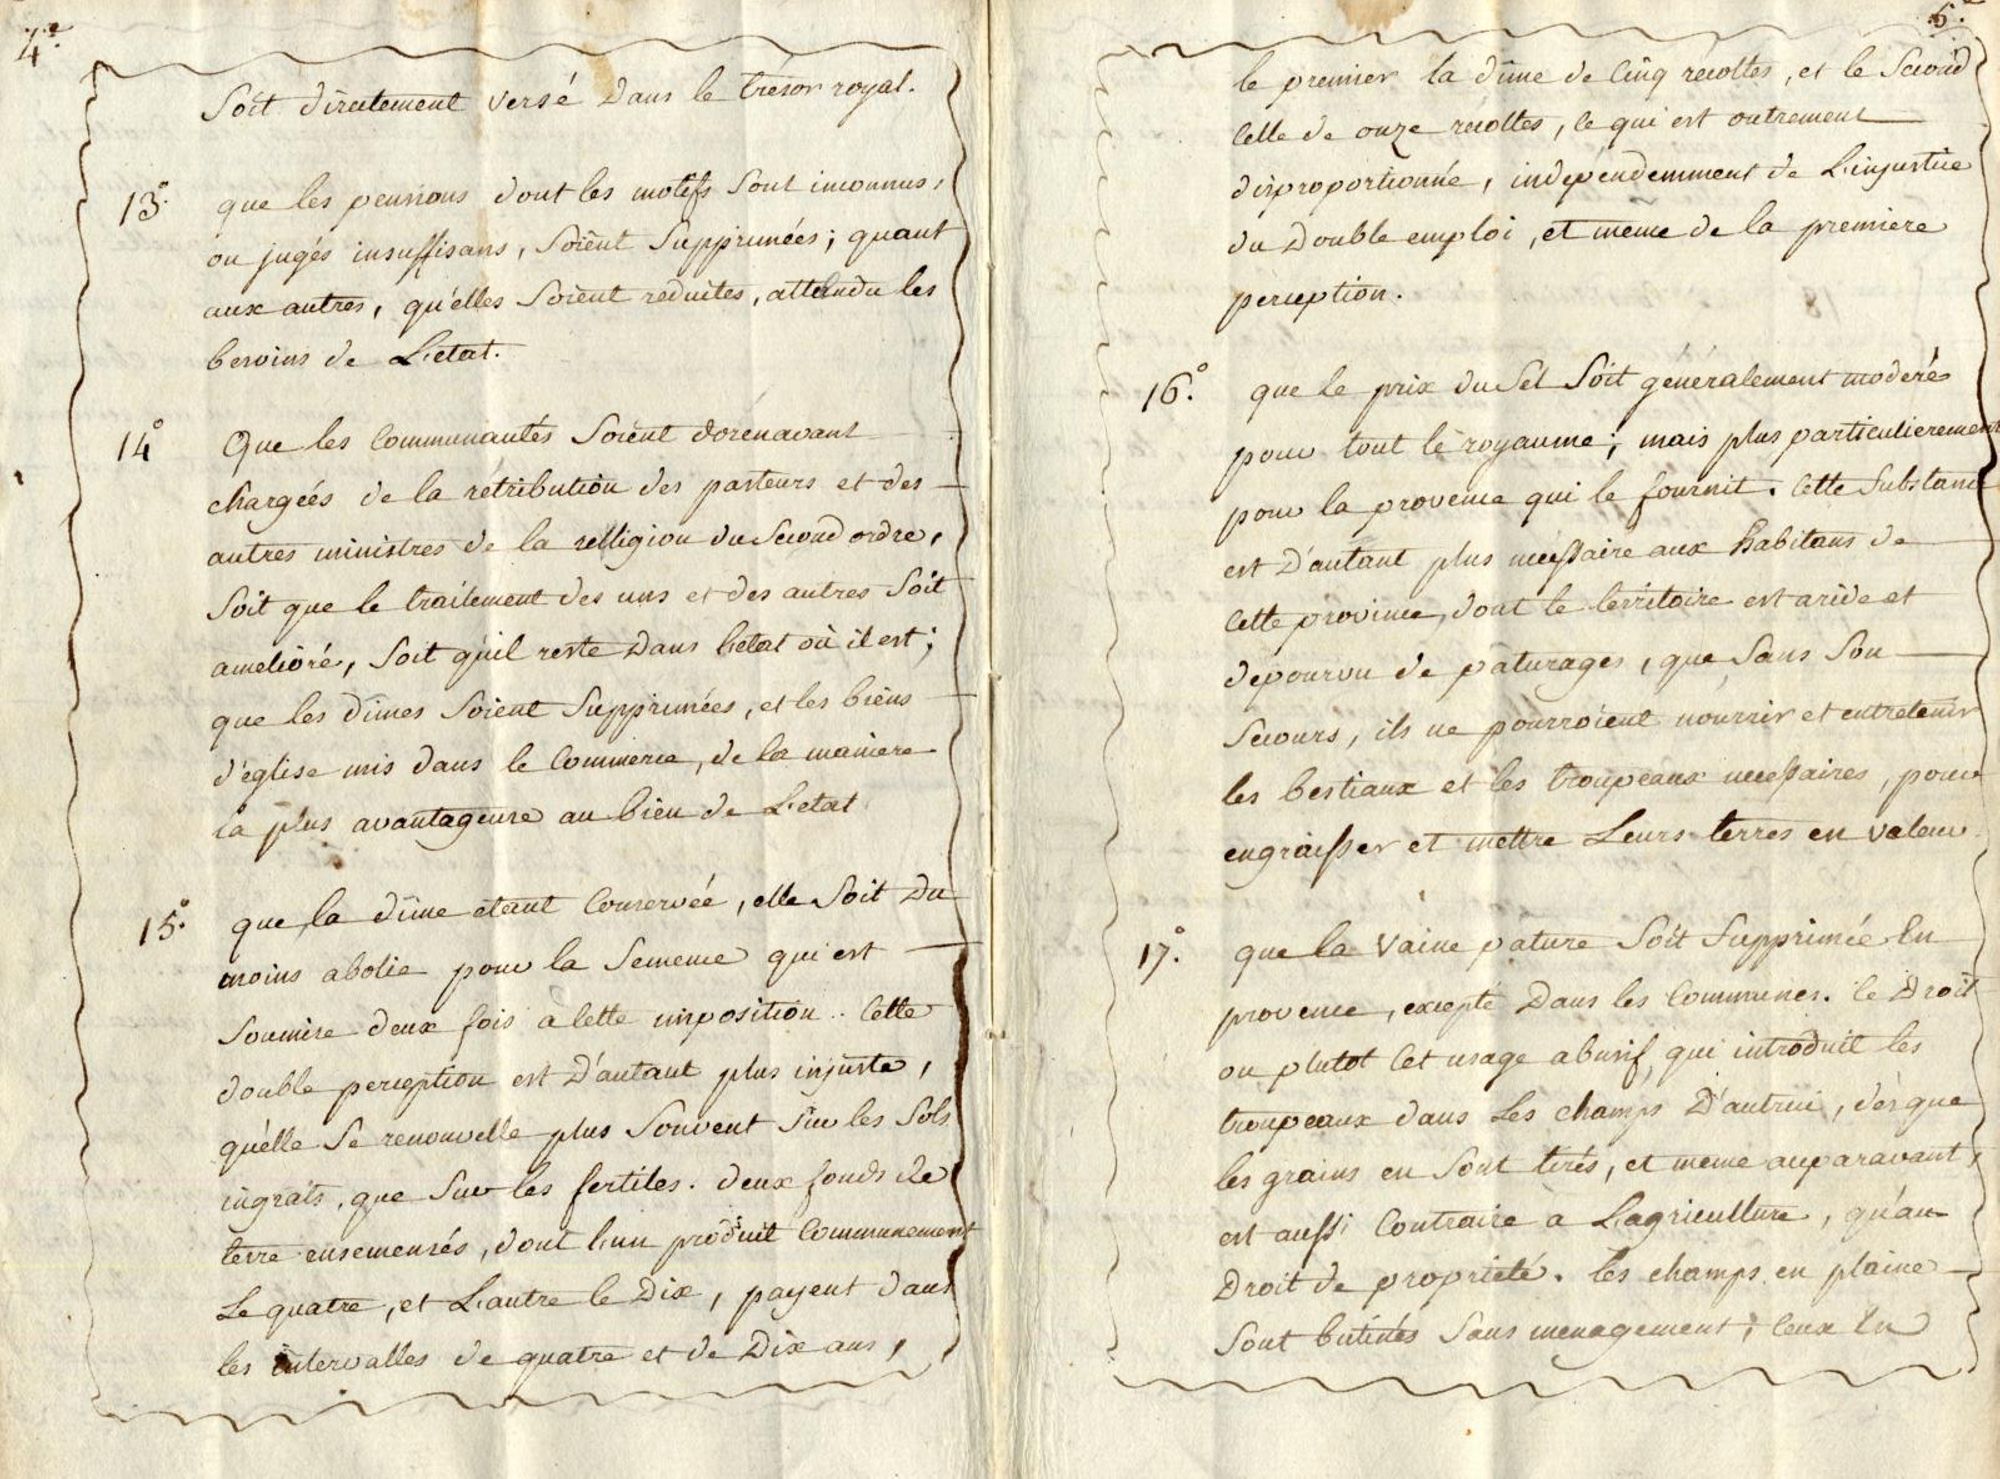 4.e
Soit directement versé dans le tresor royal.
13.° que les pensions dont les motifs sont inconnus,
ou jugés insuffisans, soient supprimées; quant
aux autres, qu'elles soient reduites, attendu les
besoins de L'etat.
14° Que les communautés soient dorénavant
chargées de la rétribution des pasteurs et des
autres ministres de la relligion du second ordre,
soit que le traitement des uns et des autres soit
amelioré, soit qu'il reste dans l'etat où il est;
que les dimes soient supprimées, et les biens
d'église mis dans le commerce, de la maniere
la plus avantageuse au bien de L'etat
15.° que la dime etant conservée, elle soit du
moins abolie pour la semence qui est
soumise deux fois à cette imposition.. Cette
double perception est d'autant plus injuste,
qu'elle se renouvelle plus souvent sur les sols
ingrats, que sur les fertiles. deux fonds de
terre ensemensés, dont l'un produit communement
Le quatre, et L'autre le dix, payent dans
les intervalles de quatre et de dix ans,
5.e
le premier la dime de cinq recoltes, et le second
celle de onze recoltes, ce qui est outrement
disproportionné, indépendemment de L'injustice
du double emploi, et meme de la premiere
perception.
16.° que le prix du sel soit généralement moderé
pour tout le royaume; mais plus particulierement
pour la provence qui le fournit. Cette substance
est d'autant plus necessaire aux habitans de
cette province, dont le territoire est aride et
depourvu de paturages, que sans son
secours, ils ne pourroient nourrir et entretenir
les bestiaux et les troupeaux necessaires, pour
engraisser et mettre Leurs terres en valeur.
17.° que la vaine pature soit supprimée en
provence, excepté dans les communes. le droit
ou plutot cet usage abusif, qui introduit les
troupeaux dans les champs d'autrui, dès que
les grains en sont tirés, et meme auparavant,
est aussi contraire à L'agriculture, qu'au
droit de propriété. les champs en plaine
sont butinés sans menagement; ceux en